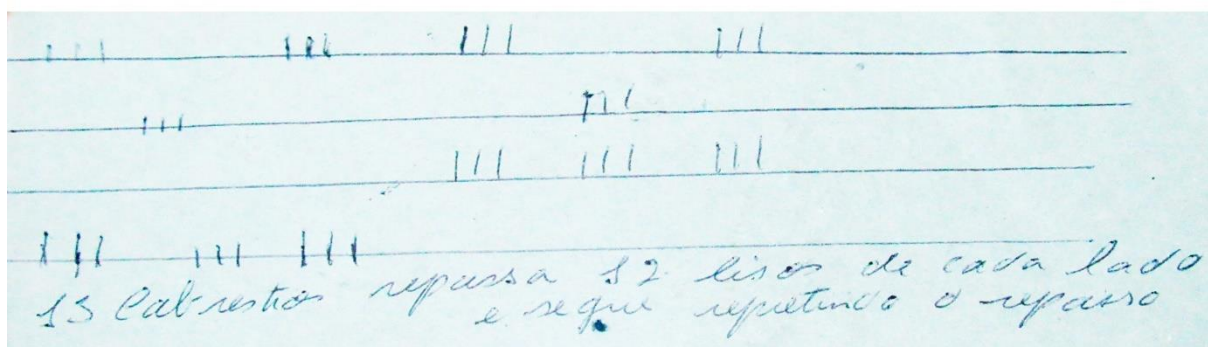 13 Cabrestios repassa 12 lisos de cada lado
e segue repetindo o repasso